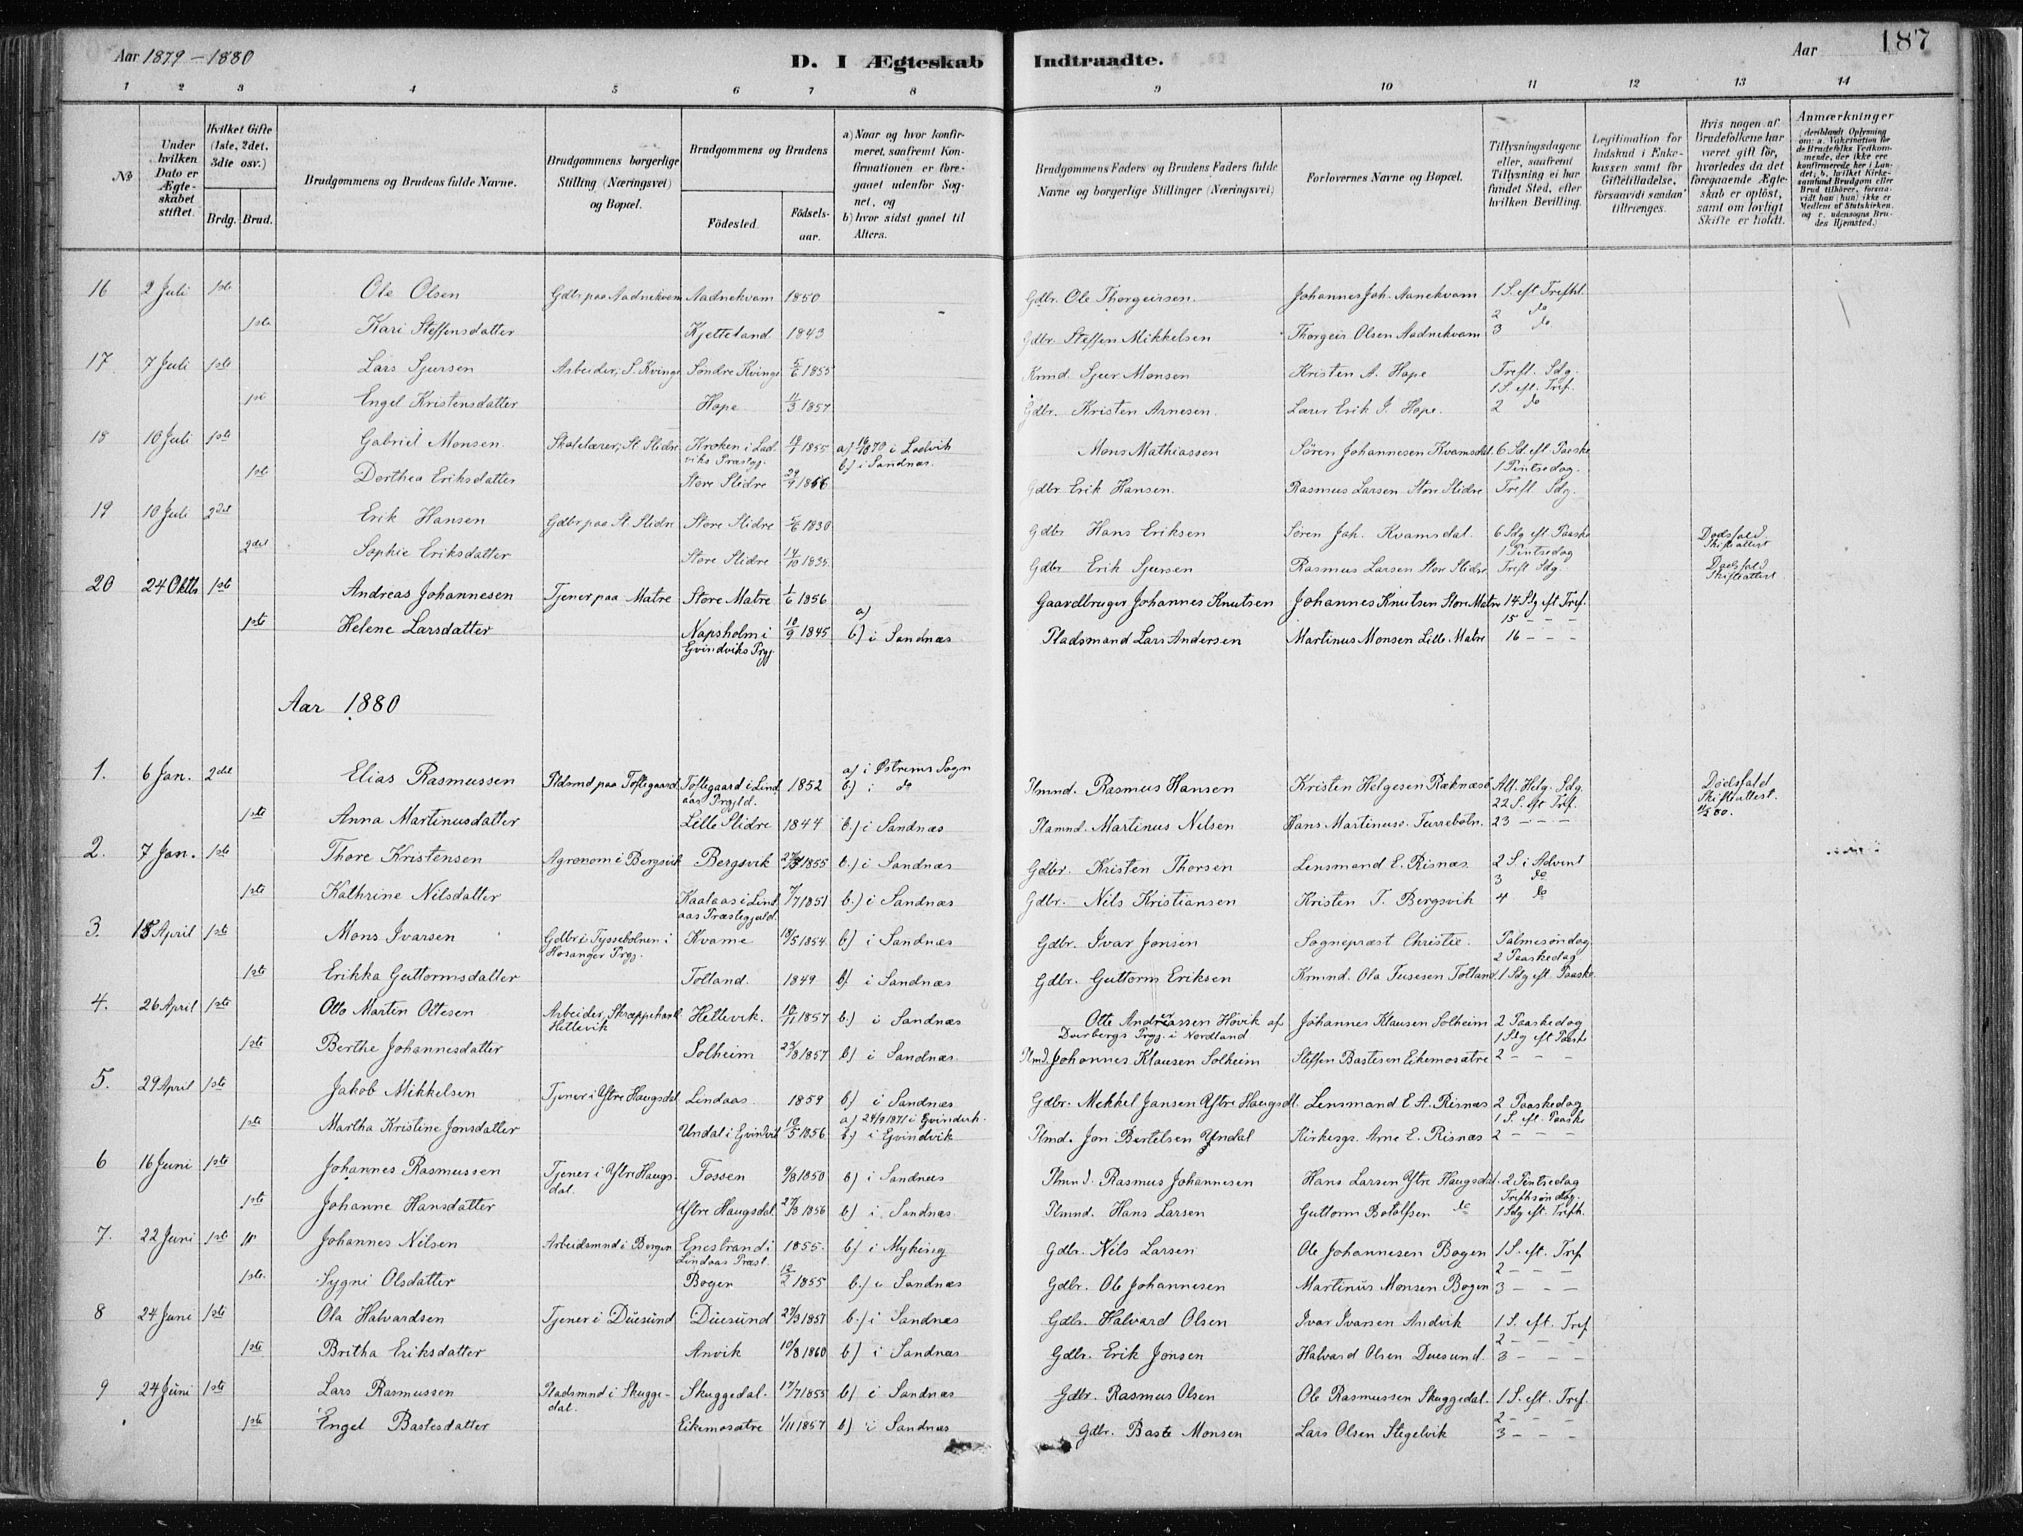 Aar 1879-1880
D. I Ægteskab Indtraadte.
Aar
187
1 2 3 4 5 6 7 8 9 10 11 12 13 14
No
Under hvilken Dato er Ægteskabet stiftet.
Hvilket Gifte (1ste, 2det, 3die osv.)
Brdg. Brud.
Brudgommens og Brudens fulde Navne.
Brudgommens borgerlige Stilling (Næringsvei) og Bopæl.
Brudgommens og Brudens
Födested.
Födselsaar.
a) Naar og hvor konfirmeret, saafremt Konfirmationen er foregaaet udenfor Sognet, og
b) hvor sidst gaaet til Alters.
Brudgommens Faders og Brudens Faders fulde Navne og borgerlige Stillinger (Næringsvei)
Forlovernes Navne og Bopæl.
Tillysningsdagene eller, saafremt Tillysning ei har fundet Sted, efter hvilken Bevilling.
Legitimation for Indskud i Enkekassen samt for Giftetilladelse, forsaavidt saadan tiltrænges.
Hvis nogen af Brudefolkene har været gift för, hvorledes da det foregaaende Ægteskab er oplöst, samt om lovligt Skifte er holdt.
Anmærkninger
16 2 Juli 1ste Ole Olsen Gdbr paa Aadnekvam Aadnekvam 1850 Gdbr. Ole Thorgeirsen Johannes Joh. Aanekvam 1 S. eft Trefht
2 do
1ste Kari Steffensdatter Kjetteland 1843 Gdbr. Steffen Mikkelsen Thorgeir Olsen Aadnekvam 3 do
17 7 Juli 1ste Lars Sjursen Arbeider, S. Kvinge Søndre Kvinge 5/6 1855 Kmd. Sjur Monsen Kristen A. Hope Trefl. Sdg.
1 S. eft. Tref.
Engel Kristensdatter Hope 4/3 1857 Gdbr. Kristen Arnesen Lærer Erik J. Hope 2 do
18 10 Juli 1ste Gabriel Monsen Skolelærer, St. Slidre Kroken i Ladviks Præstg. 1855 a) 1870 i Ladvik b) i Sandnæs. Mons Mathiassen Søren Johannesen Kvamsdal 6 Sd. eft Paaske
1 Pintsedag
1ste Dorthea Eriksdatter Store Slidre 1856 Gdbr Erik Hansen Rasmus Larsen Store Slidre Trefl Sdg.
19 10 Juli 2det Erik Hansen Gdbr paa St. Slidre Store Slidre 5/6 1830 Gdbr Hans Eriksen Søren Joh. Kvamsdal 6 Sdg eft Paaske Dødsfald Skifteattest
1 Pintsedag
2det Sophie Eriksdatter Store Slidre 14/10 1835 Gdbr Erik Sjursen Rasmus Larsen Store Slidre Trefl Sdg. Dødsfald Skifteattest
20 24 Oktbr 1ste Andreas Johannesen Tjener paa Matre Store Matre 1/6 1856 Gaardbruger Johannes Knutsen Johannes Knutsen Store Matre 14 Sdg eft Tref.
a) 15 - - -
1ste Helene Larsdatter Napsholm i Evindviks Prgj. 10/9 1845 b) i Sandnæs Pladsmand Lars Andersen Martinus Monsen Lille Matre 16 - - -
Aar 1880
1. 6 Jan. 2det Elias Rasmussen Pldsmd paa Toftegaard Toftegaard i Lindaas Prgjld. 1852 a) i Østrems Sogn b) i do Plmnd. Rasmus Hansen Kristen Helgesen Ræknæs All. Helg. Sdg. Dødsfald Skifteattest.
22 S. eft Tref.
1ste Anna Martinusdatter Lille Slidre 1844 b.) i Sandnæs Plamnd. Martinus Nilsen Hans Martinuss. Turrebotn. 23 - - -
2. 7 Jan. 1ste Thore Kristensen Agronom i Bergsvik Bergsvik 1855 b.) i Sandnæs Gdbr. Kristen Thorsen Lensmand E. Risnæs 2 S. i Advent
3 do
1ste Kathrine Nilsdatter Kaalaas i Lindaas Præstegjeld. 7/7 1851 b.) i Sandnæs Gdbr. Nils Kristiansen Kristen T. Bergsvik 4 do
3. 15 April 1ste Mons Ivarsen Gdbr i Tyssebotnen i Hosanger Prgj. Kvame 10/5 1854 b) i Sandnæs Gdbr. Ivar Jonsen Sognepræst Christie. Palmesøndag
2 Paaskedag
1ste Erikka Guttormsdatter Totland. 1849 b) i Sandnæs Gdbr. Guttorm Eriksen Kmnd. Ola Tusesen Totland. 1 Sdg eft. Paaske.
4. 26 April 1ste Otto Martin Ottesen Arbeider, Skræppehandl Hettevik Hettevik. 10/11 1857 b.) i Sandnæs Otte Andreassen Hovik af Dverbergs Prgj. i Nordland Johannes Klausen Solheim 2 Paaskedag
1 Sdg eft Paaske
1ste Berthe Johannesdatter Solheim 23/8 1857 b) i Sandnæs Plmd. Johannes Klausen Solheim Steffen Bastesen Eikemosætre 2 - - -
5. 29 April 1ste Jakob Mikkelsen Tjener i Ytre Haugsdal Lindaas 1859 b) i Sandnæs Gdbr. Mekkel Jansen Ytre Haugsdl. Lensmand E. A. Risnæs 2 Paaskedag
1 S. eft. Paaske
1ste Martha Kristine Jonsdatter Undal i Evindvik 10/5 1856 a) 24/9 1871 i Evindvik. b) i Evindvik Plmd. Jon Bertelsen Yndal Kirkesgr. Arne E. Risnæs 2 - - -
6 16 Juni 1ste Johannes Rasmussen Tjener i Ytre Haugsdal. Fossen 9/8 1850 b) i Sandnæs Plmnd. Rasmus Johannesen Hans Larsen Ytre Haugsdal. 2 Pintsedag
Trefhsøndag.
1ste Johanne Hansdatter Ytre Haugsdal. 1856 b) i Sandnæs Plmnd. Hans Larsen Guttorm Botolfsen do 1 Sdg eft. Trefh.
7. 22 Juni 1ste Johannes Nilsen Arbeidsmnd i Bergen Enestrand i Lindaas Præst. 1855. b) i Myking Gdbr. Nils Larsen Ole Johannesen Bogen 1 S. eft. Tref
2 - - -
1ste Sygni Olsdatter Bogen 12/2 1855 b.) i Sandnæs Gdbr. Ole Johannesen Martinus Monsen Bogen 3 - - -
8 24 Juni 1ste Ola Halvardsen Tjener i Duesund Duesund 1857 b.) i Sandnæs Gdbr. Halvard Olsen Ivar Ivarsen Andvik 1 S. eft. Tref
2 - - -
1ste Britha Eriksdatter Anvik 10/8 1860 b) i Sandnæs Gdbr. Erik Jonsen Halvard Olsen Duesund. 3 - - -
9 24 Juni 1ste Lars Rasmussen Pladsmnd i Skuggedal. Skuggedal. 17/7 1855 b) i Sandnæs Gdbr. Rasmus Olsen Ole Rasmussen Skuggedal. 1 S. eft. Tref.
2 - - -
1ste Engel Bastesdatter Eikemosætre 1/11 1857 b) i Sandnæs Gdbr. Baste Monsen Lars Olsen Stegelvik 3 - - -